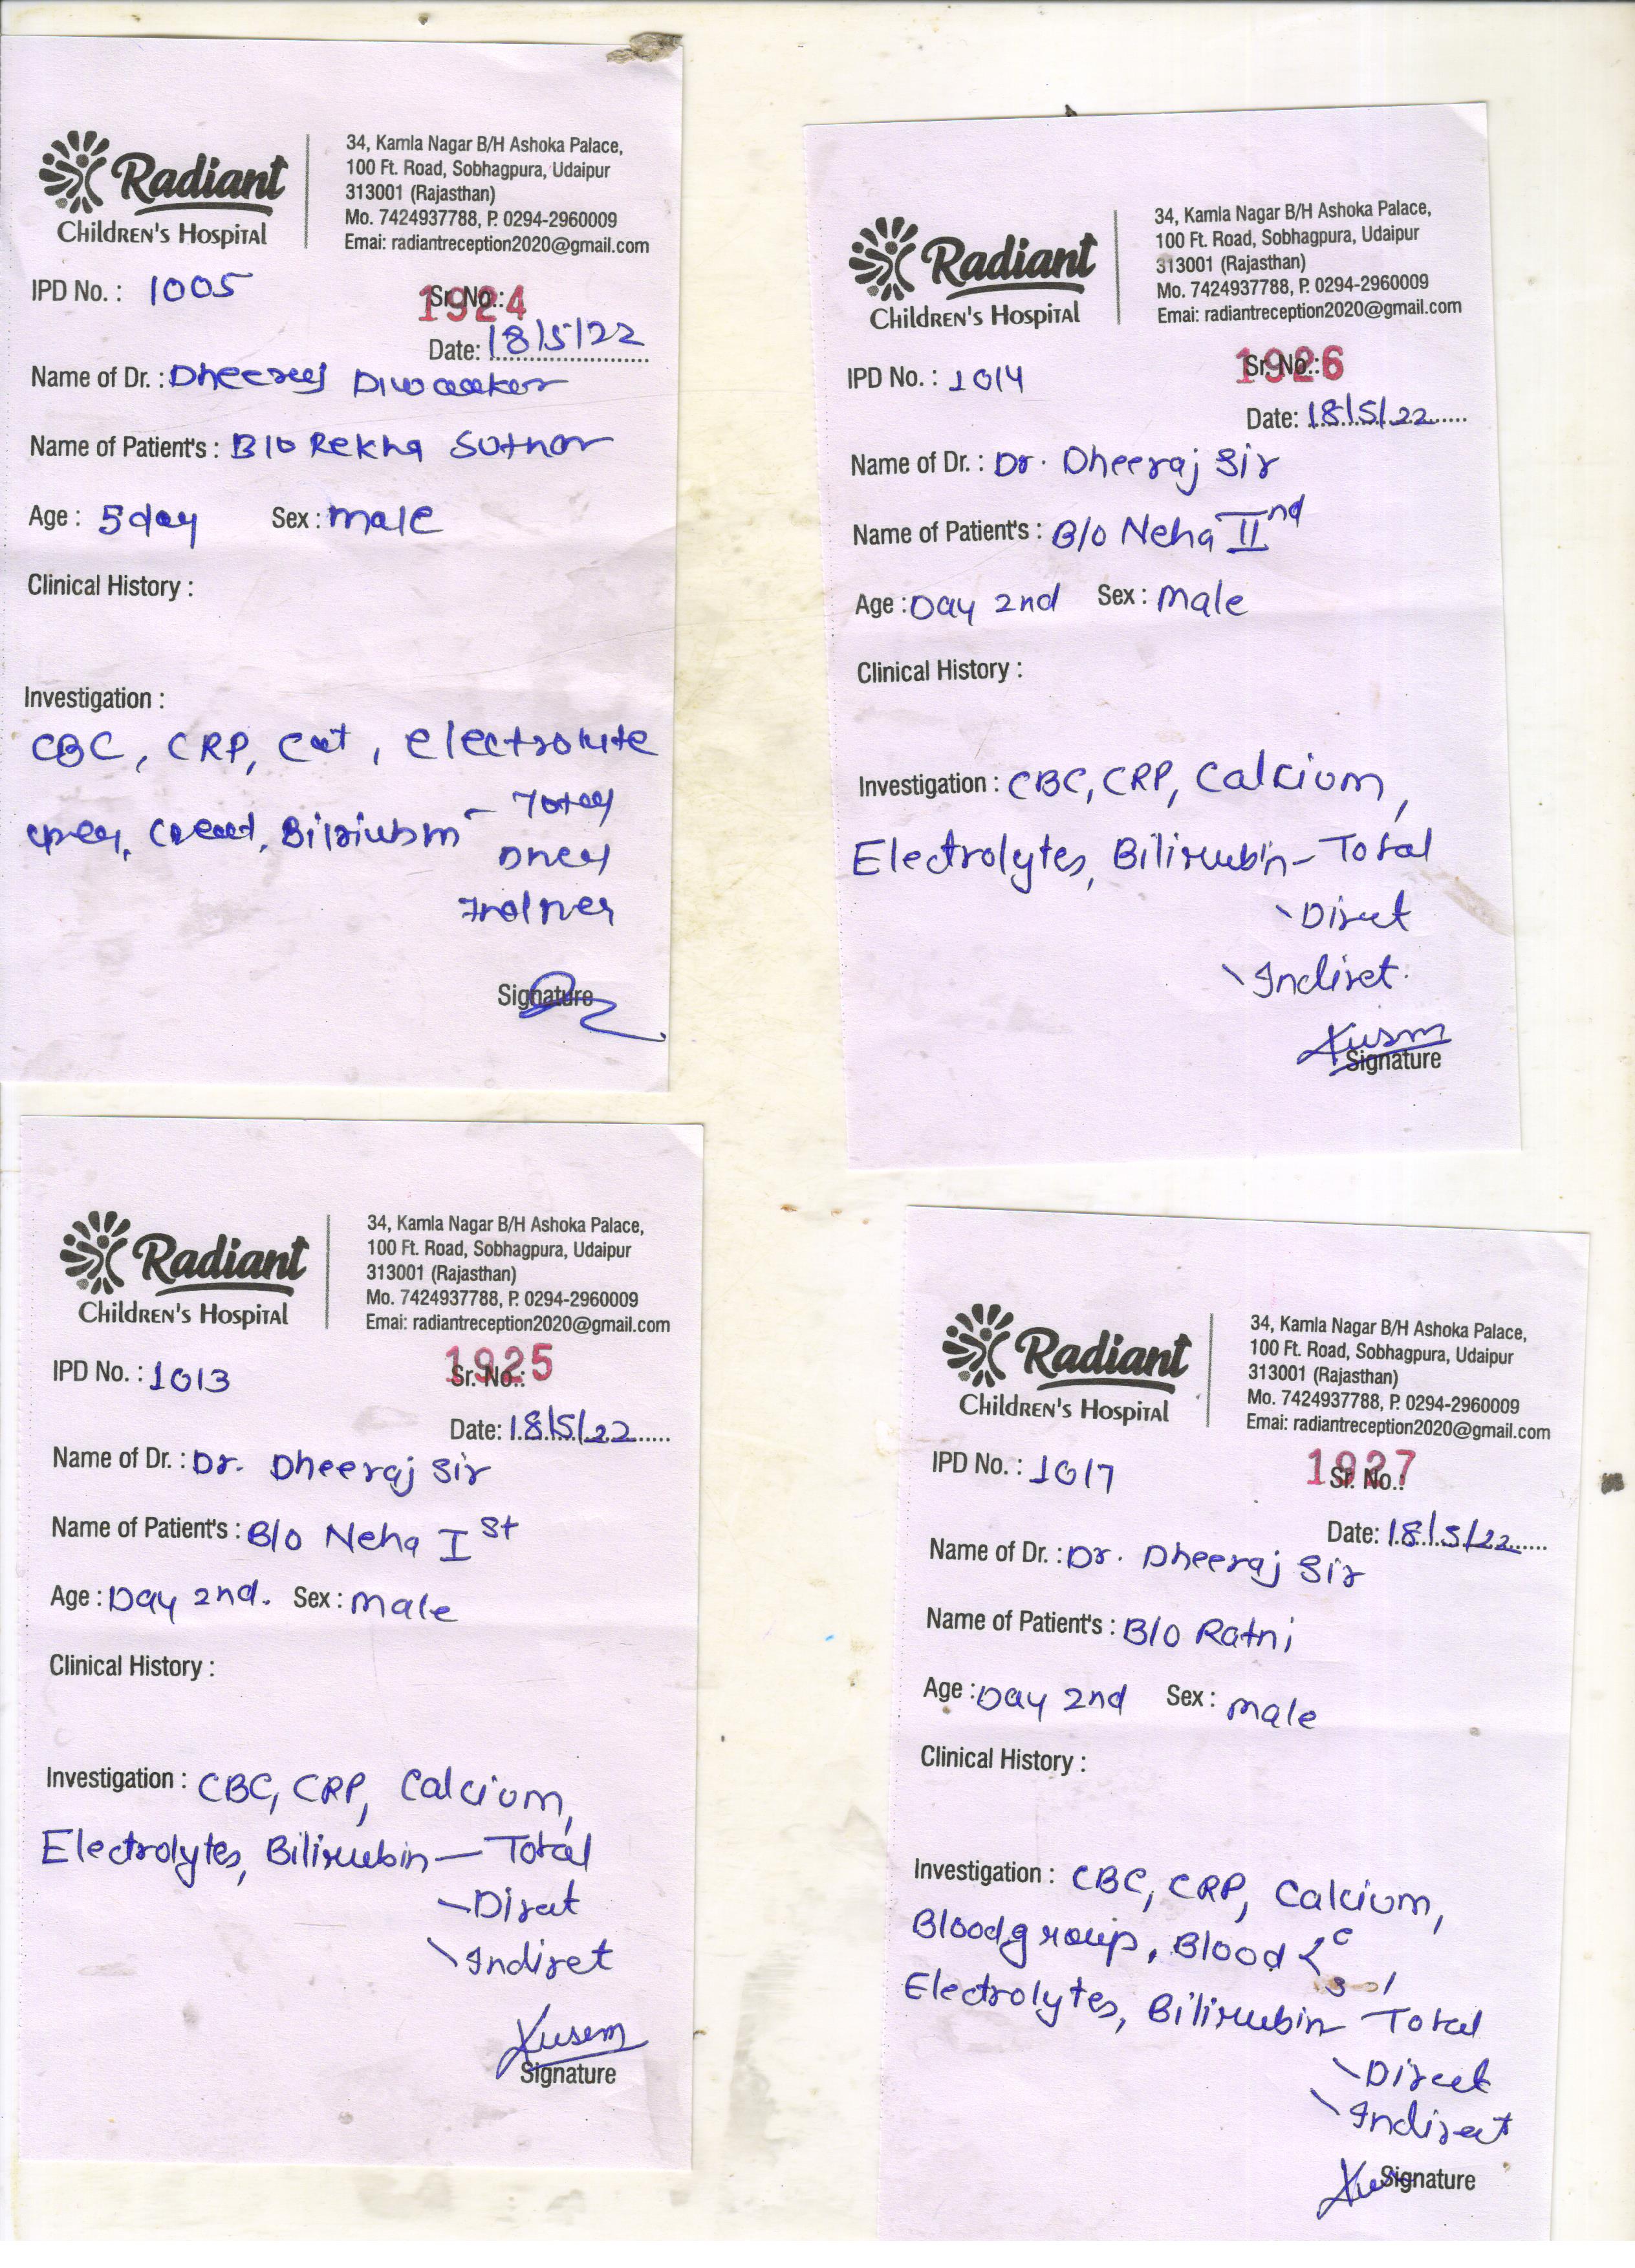 Radiant
Children's Hospital
34, Kamla Nagar B/H Ashoka Palace,
100 Ft. Road, Sobhagpura, Udaipur
313001 (Rajasthan)
Mo. 7424937788, P. 0294-2960009
Emai: radiantreception2020@gmail.com
IPD No. : 1005
Sr. No.: 1924
Date: 18/5/22
Name of Dr. : Dheeraj Diwaaker
Name of Patient's : B/o Rekha Suthar
Age : 5 day Sex : male
Clinical History :
Investigation :
CBC, CRP, electrolute
Signature
Radiant
Children's Hospital
34, Kamla Nagar B/H Ashoka Palace,
100 Ft. Road, Sobhagpura, Udaipur
313001 (Rajasthan)
Mo. 7424937788, P. 0294-2960009
Emai: radiantreception2020@gmail.com
IPD No. : 1014
Sr. No.: 1926
Date: 18/5/22
Name of Dr. : Dr. Dheeraj Sir
Name of Patient's : B/o Neha IInd
Age : Day 2nd Sex : male
Clinical History :
Investigation : CBC, CRP, Calcium,
Electrolytes, Bilirubin - Total
- Direct
- Indiret.
Kusm
Signature
Radiant
Children's Hospital
34, Kamla Nagar B/H Ashoka Palace,
100 Ft. Road, Sobhagpura, Udaipur
313001 (Rajasthan)
Mo. 7424937788, P. 0294-2960009
Emai: radiantreception2020@gmail.com
IPD No. : 1013
Sr. No.: 1925
Date: 18/5/22
Name of Dr. : Dr. Dheeraj Sir
Name of Patient's : B/o Neha Ist
Age : Day 2nd. Sex : male
Clinical History :
Investigation : CBC, CRP, Calcium,
Electrolytes, Bilirubin - Total
- Direct
- Indiret
Kusem
Signature
Radiant
Children's Hospital
34, Kamla Nagar B/H Ashoka Palace,
100 Ft. Road, Sobhagpura, Udaipur
313001 (Rajasthan)
Mo. 7424937788, P. 0294-2960009
Emai: radiantreception2020@gmail.com
IPD No. : 1017
Sr. No.: 1927
Date: 18/5/22
Name of Dr. : Dr. Dheeraj Sir
Name of Patient's : B/o Ratni
Age : Day 2nd Sex : male
Clinical History :
Investigation : CBC, CRP, Calcium,
Blood group, Blood < c s,
Electrolytes, Bilirubin - Total
- Direct
- Indirect
Signature